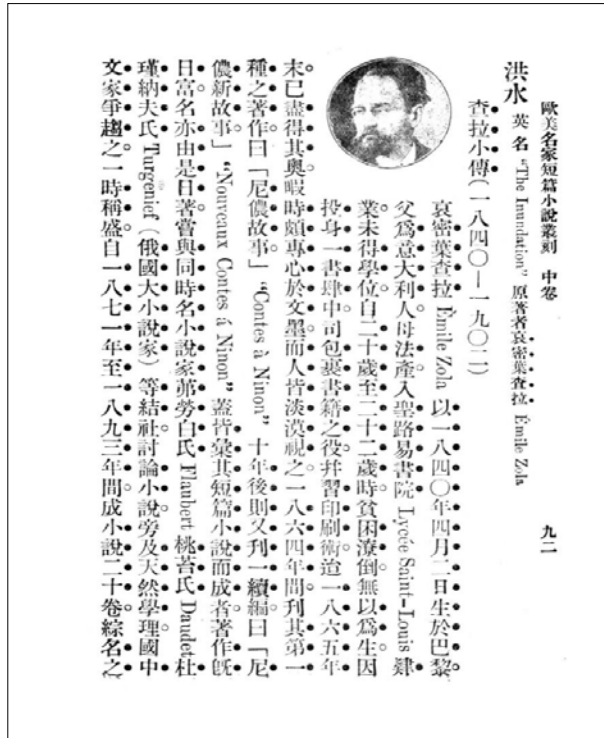 歐美名家短篇小說叢刻 中卷 九二
洪水 英名 "The Inundation" 原著者哀密葉查拉 Émile Zola
查拉小傳(一八四〇—一九〇二)
哀密葉查拉 Émile Zola 以一八四〇年四月二日生於巴黎。
父爲意大利人母法產入聖路易書院 Lycée Saint-Louis 肄
業未得學位自二十歲至二十二歲時貧困潦倒無以爲生因
投身一書肆中司包裹書籍之役幷習印刷術迨一八六五年
末已盡得其奧暇時頗專心於文墨而人皆淡漠視之一八六四年間刊其第一
種之著作曰「尼儂故事」 "Contes à Ninon" 十年後則又刊一續編曰「尼
儂新故事」 "Nouveaux Contes á Ninon" 蓋皆彙其短篇小說而成者著作旣
日富名亦由是日著嘗與同時名小說家茀勞白氏 Flaubert 桃苔氏 Daudet 杜
瑾納夫氏 Turgenief (俄國大小說家) 等結社討論小說旁及天然學理國中
文家爭趨之一時稱盛自一八七一年至一八九三年間成小說二十卷綜名之